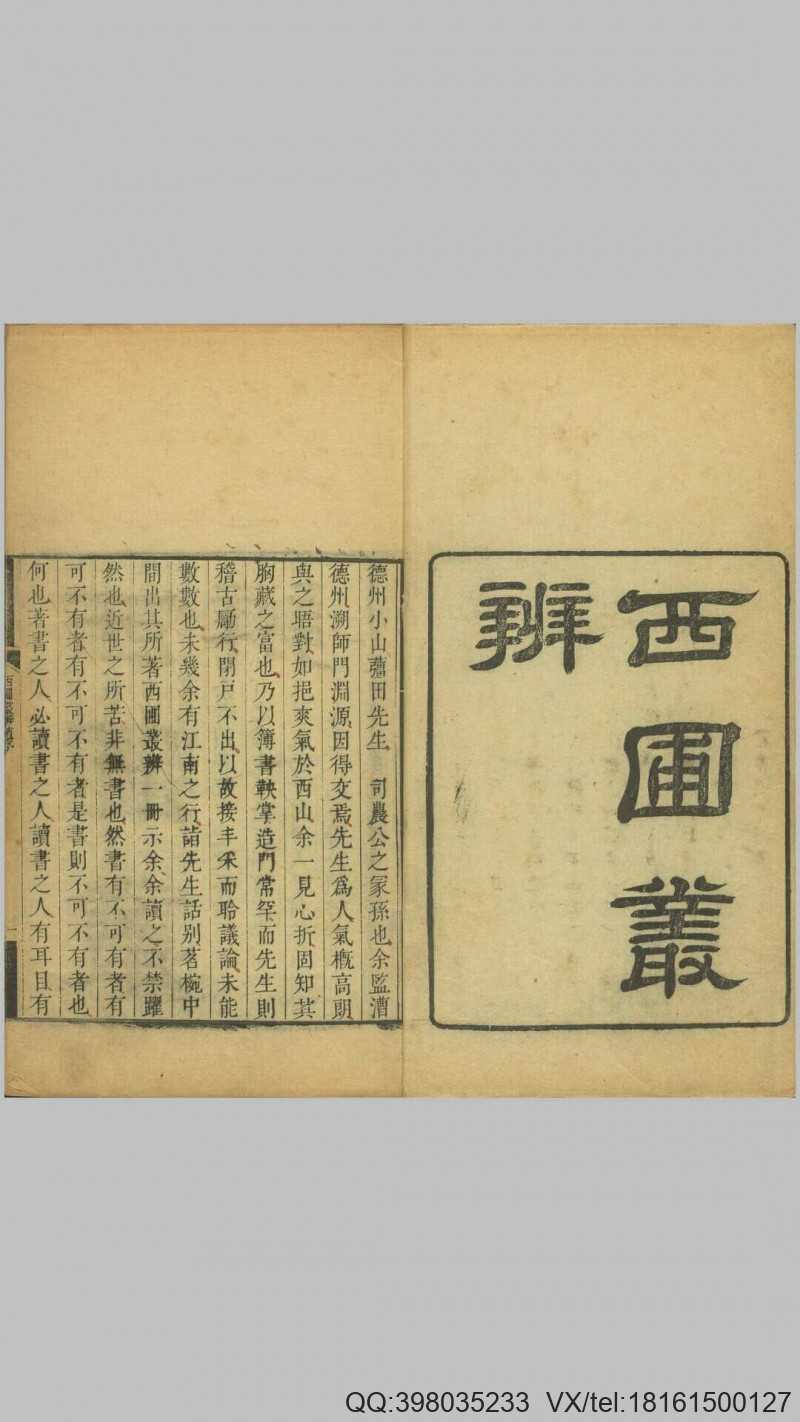 西圃叢
辨
德州小山薑田先生　司農公之冢孫也余監漕
德州溯師門淵源因得交焉先生爲人氣槪高朗
與之晤對如挹爽氣於西山余一見心折固知其
胸藏之富也乃以簿書鞅掌造門常罕而先生則
稽古勵行閉戸不出以故接丰采而聆議論未能
數數也未幾余有江南之行詣先生話别茗椀中
間出其所著西圃叢辨一冊示余余讀之不禁躍
然也近世之所苦非無書也然書有不可有者有
可不有者有不可不有者是書則不可不有者也
何也著書之人必讀書之人讀書之人有耳目有
西圃叢辨
一
QQ:398035233 VX/tel:18161500127